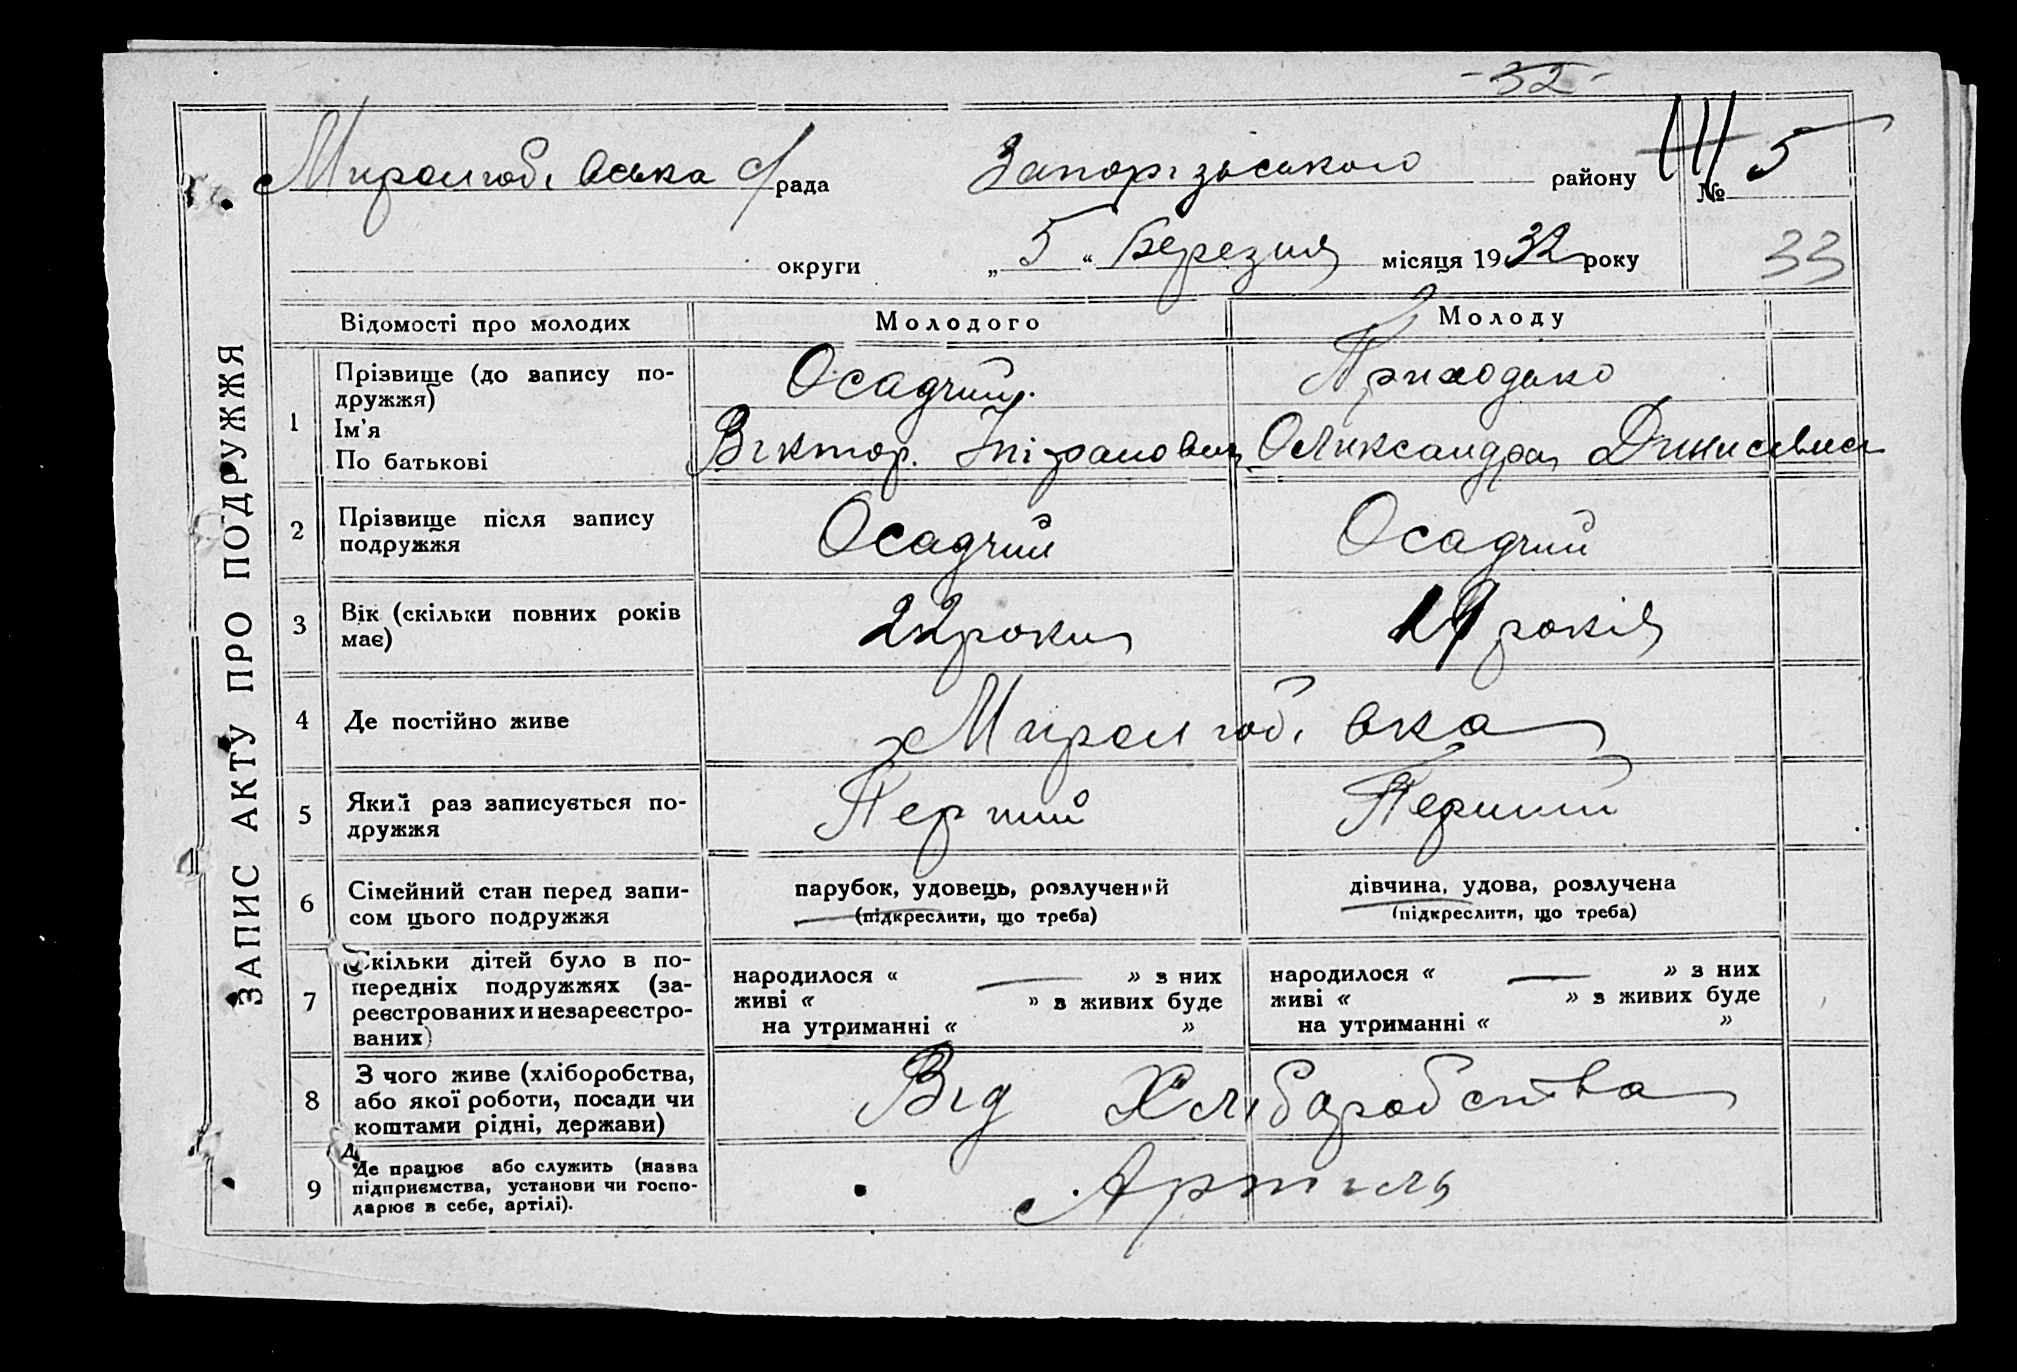 -32-
Миролюбівська с/рада Запорізького району № 5
округи „5“ Березня місяця 1932 року 33
ЗАПИС АКТУ ПРО ПОДРУЖЖЯ
Відомості про молодих Молодого Молоду
1 Прізвище (до запису подружжя) Осадчий Приходько
Ім'я
По батькові Віктор Олександра
2 Прізвище після запису подружжя Осадчий Осадчий
3 Вік (скільки повних років має) 22 роки 19 років
4 Де постійно живе Миролюбівка
5 Який раз записується подружжя Перший Перший
6 Сімейний стан перед записом цього подружжя парубок, удовець, розлучений дівчина, удова, розлучена
(підкреслити, що треба) (підкреслити, що треба)
7 Скільки дітей було в попередніх подружжях (зареєстрованих и незареєстрованих)
народилося « — » з них народилося « — » з них
живі « » з живих буде живі « » з живих буде
на утриманні « » на утриманні « »
8 З чого живе (хліборобства, або якої роботи, посади чи коштами рідні, держави) Від Хліборобства
9 Де працює або служить (назва підприємства, установи чи господарює в себе, артілі). Артіль